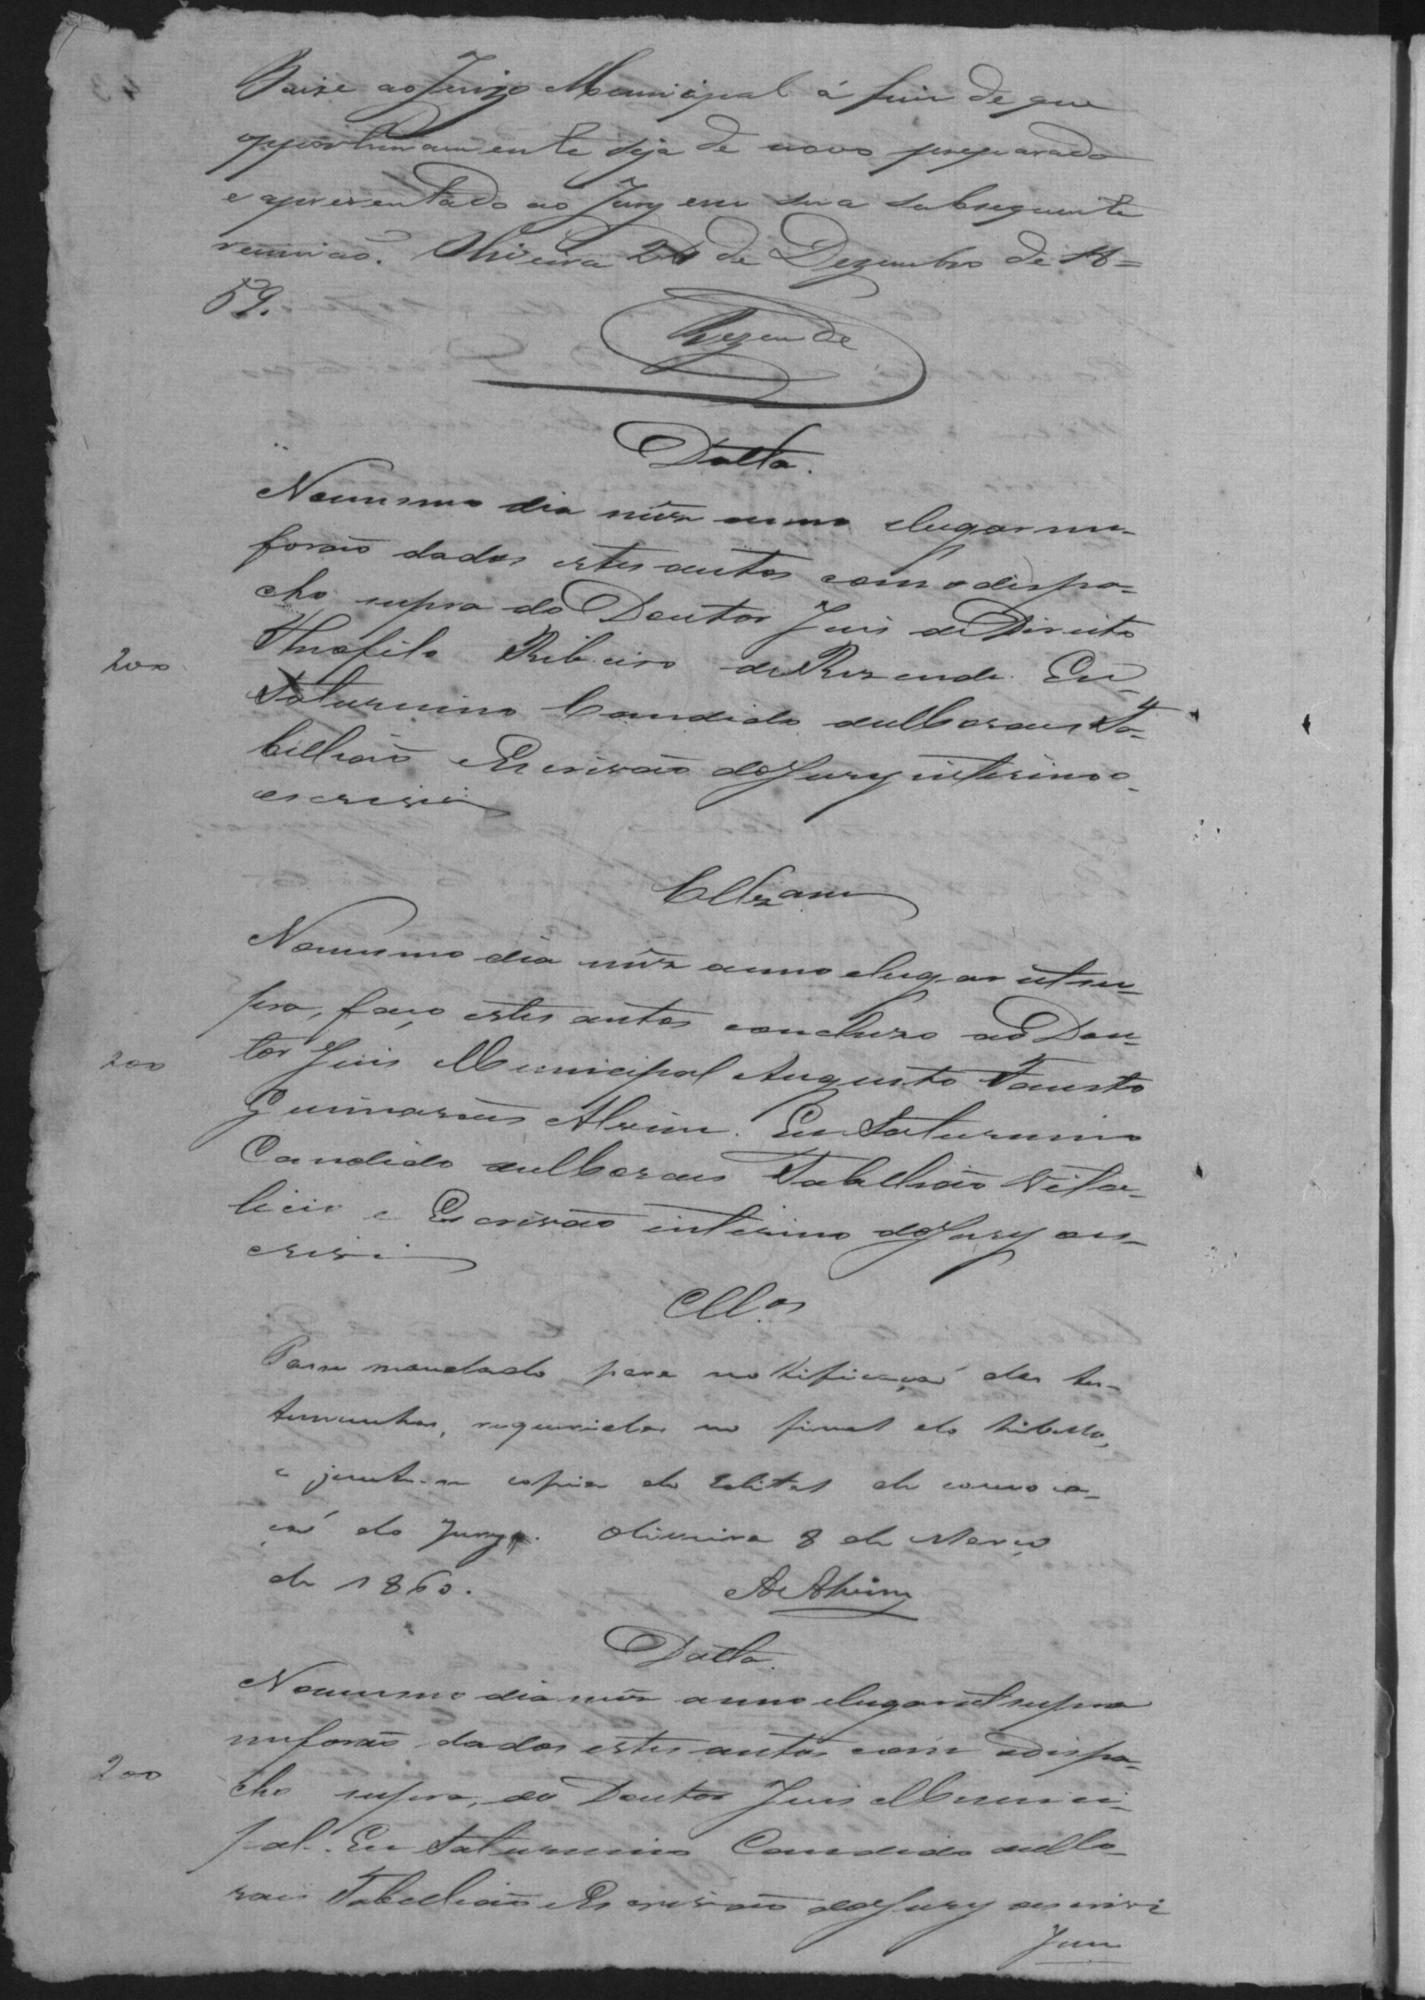 Baixe ao Juizo Municipal á fim de que
opportunamente seja de novo preparado
e apresentado ao Jury em sua subsequente
reunião. Oliveira 24 de Dezembro de 18=
59.
Rezende
Datta.
No mesmo dia mez anno elugar me
forão dados estes autos com o despa-
cho supra do Doutor Juis de Direito
200
Theofilo Ribeiro de Rezende. Eu
Saturnino Candido de Moraes Ta-
billião e Escrivão do Jury interino o
escrevi
Cllzam
No mesmo dia mez anno elugar ut su-
pra, faço estes autos concluzo ao Dou-
200
tor Juis Municipal Augusto Fausto
Guimarães Alvim. Eu Saturnino
Candido de Moraes Tabellião Vita-
licio e Escrivão interino do Jury o es-
crevi
Cllos
Passe mandado para notificaçaó das tes-
temunhas, requeridas no final do libello,
e junte-se copia do Edital de convoca-
çaó do Jury. Oliveira 8 de Março
de 1860.
A Alvim
Datta.
No mesmo dia mez anno elugar ut supra
me forão dados estes autos com o despa-
200
cho supra, do Doutor Juis Munici-
pal. Eu Saturnino Candido de Mo-
raes Tabellião e Escrivão do Jury o escrevi
Jun